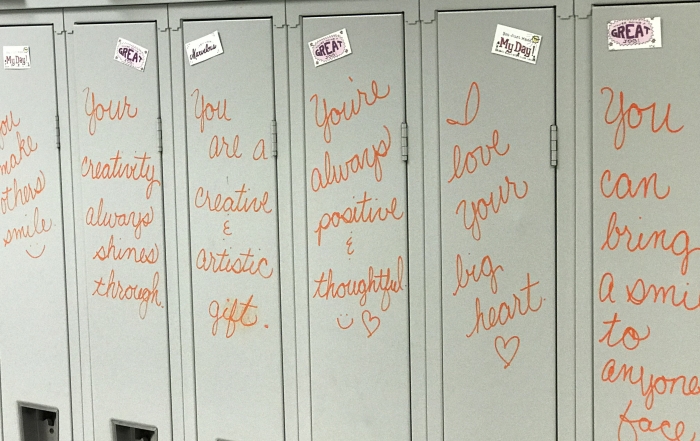 My Day!
you
make
others
smile.
GREAT
Your
creativity
always
shines
through.
Marvelous
You
are a
creative
&
artistic
gift.
GREAT
JOB!
You're
always
positive
&
thoughtful.
You Just Made
My Day!
I
love
your
big
heart.
GREAT
JOB!
You
can
bring
a smi
to
anyone
face